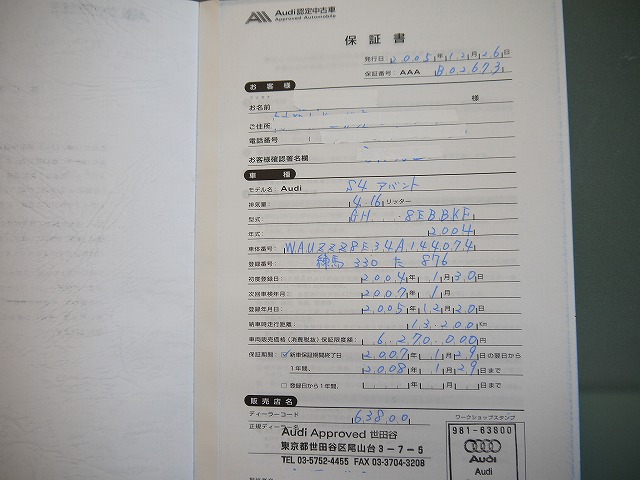 Audi認定中古車
Approved Automobile
保証書
発行日 2005年12月26日
保証番号: AAA B02673
お客様
お名前 様
ご住所
電話番号 (
お客様確認署名欄
車種
モデル名: Audi S4 アバント
排気量: 4.16 リッター
型式: GH-8EBBKF
年式: 2004
車体番号: WAUZZZ8E34A144074
登録番号: 練馬 330 た 876
初度登録日: 2004年1月30日
次回車検年月: 2007年1月
登録年月日: 2005年12月20日
納車時走行距離: 13,200Km
車両販売価格(消費税抜)保証限度額: 6,270,000円
保証期間: ☑新車保証期間終了日 2007年1月29日の翌日から
1年間、 2008年1月29日まで
□登録日から1年間、 年 月 日まで
販売店名
ディーラーコード 63800
正規ディーラー名
Audi Approved 世田谷
東京都世田谷区尾山台3-7-5
TEL 03-5752-4455 FAX 03-3704-3208
ワークショップスタンプ
981-63800
Audi
Audi